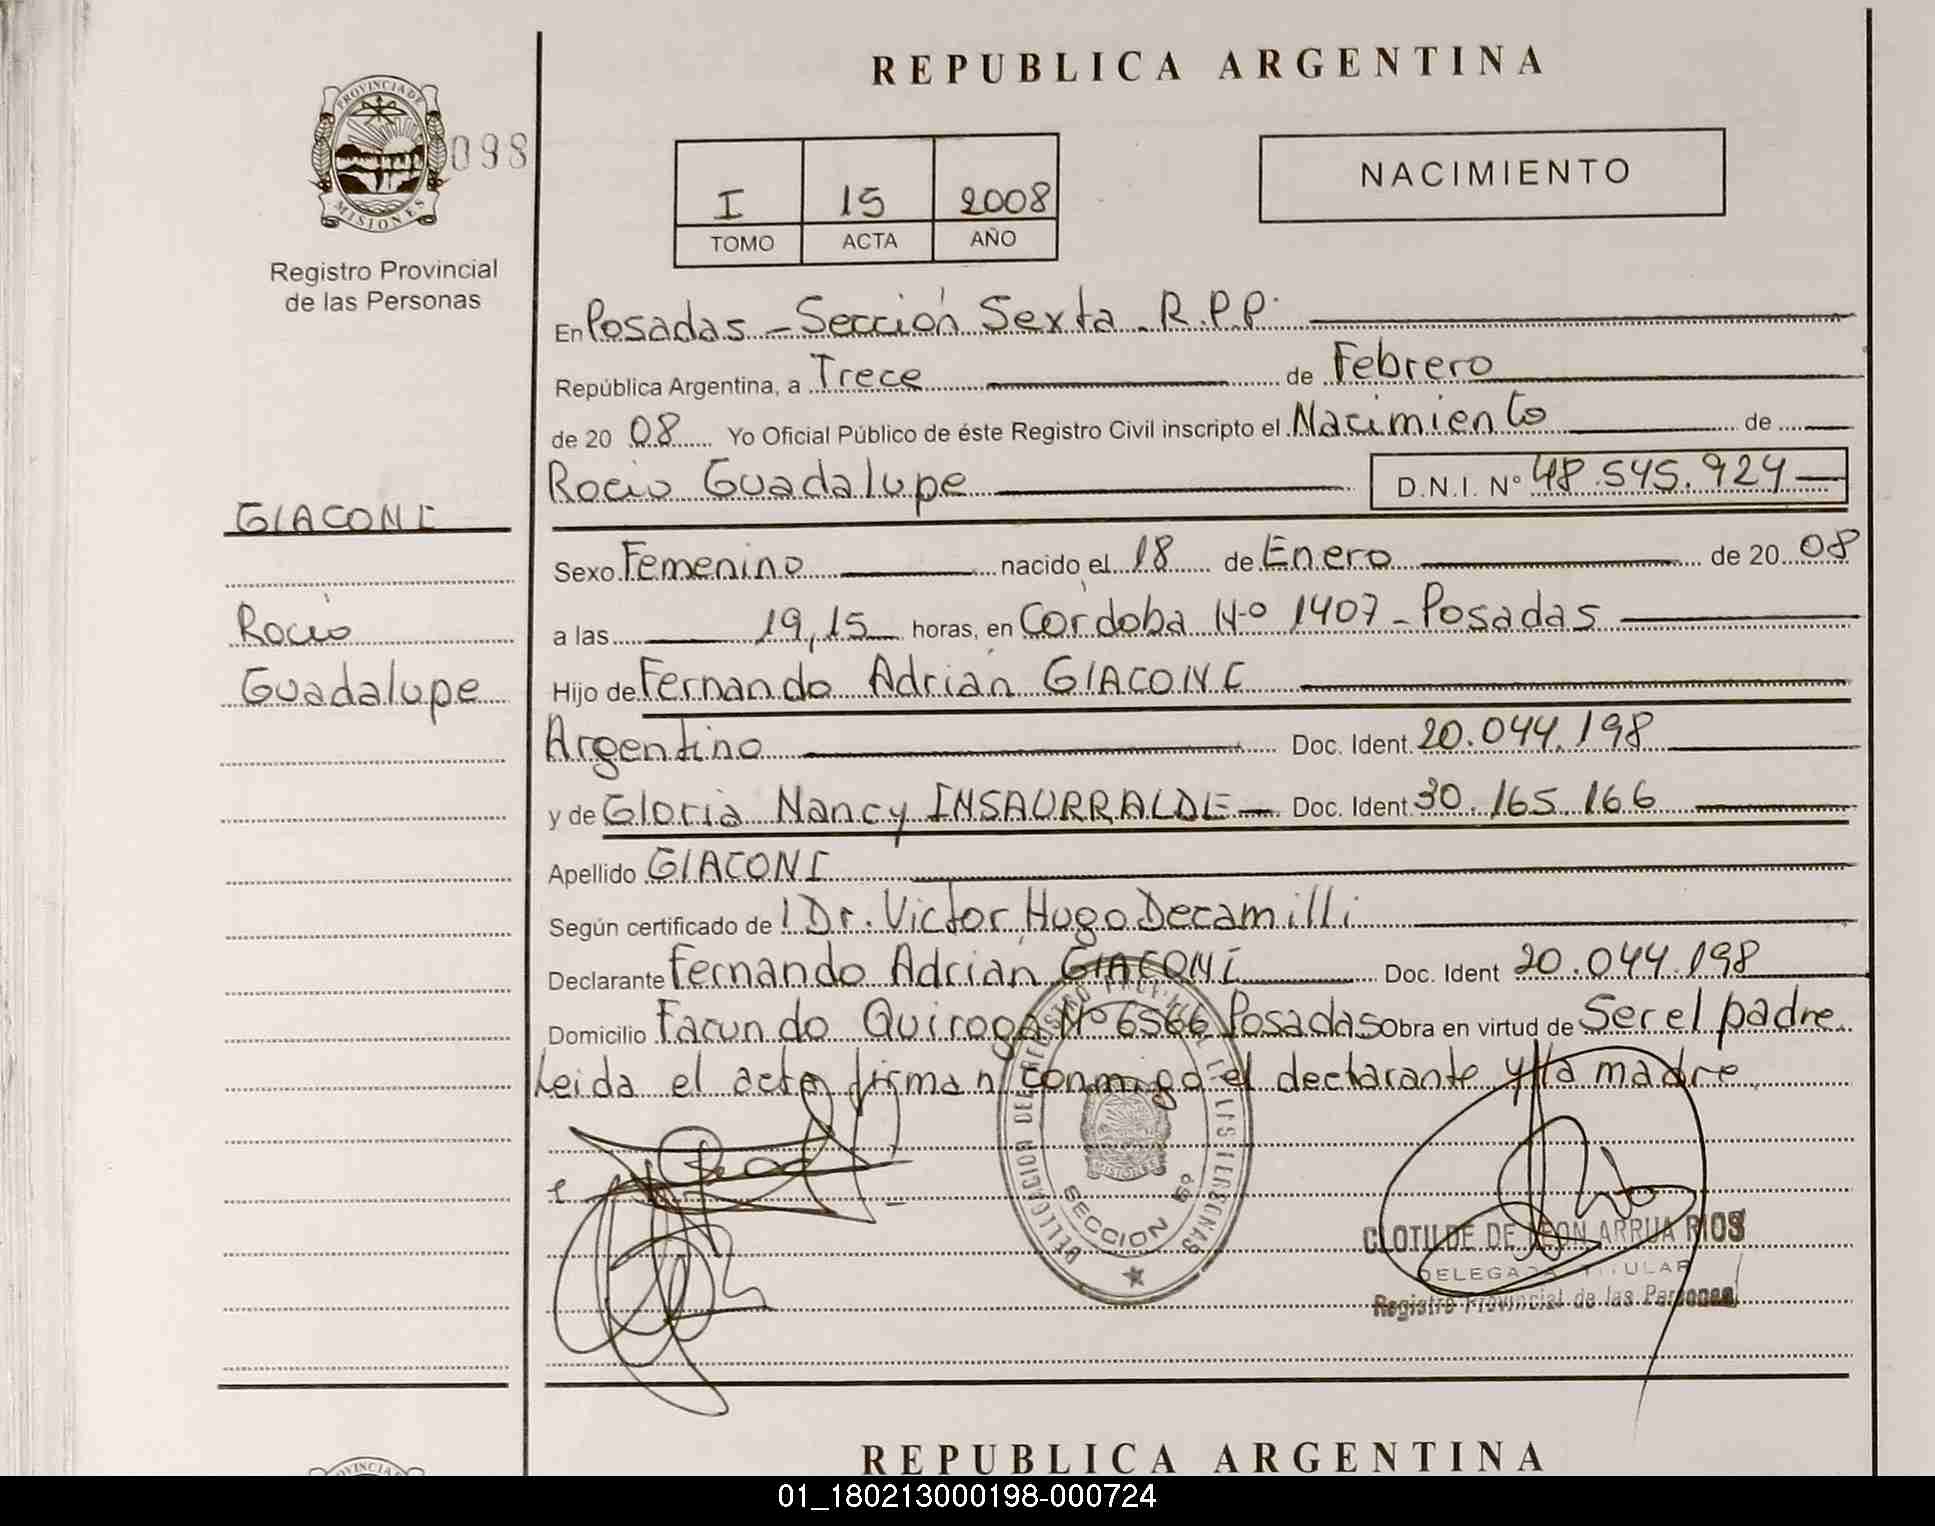 REPUBLICA ARGENTINA
PROVINCIA DE MISIONES
098
I 15 2008
TOMO ACTA AÑO
NACIMIENTO
Registro Provincial
de las Personas
En Posadas - Sección Sexta R.P.P.
República Argentina, a Trece de Febrero
de 20 08 Yo Oficial Público de éste Registro Civil inscripto el Nacimiento de
Rocio Guadalupe D.N.I. Nº 48.545.924
GIACONI
Sexo Femenino nacido el 18 de Enero de 20 08
Rocio
a las 19,15 horas, en Córdoba Nº 1407 - Posadas
Guadalupe
Hijo de Fernando Adrián GIACONI
Argentino Doc. Ident. 20.044.198
y de Gloria Nancy INSAURRALDE Doc. Ident. 30.165.166
Apellido GIACONI
Según certificado de l Dr. Victor Hugo Decamilli
Declarante Fernando Adrián GIACONI Doc. Ident 20.044.198
Domicilio Facundo Quiroga Nº 6566 Posadas Obra en virtud de Ser el padre.
Leida el acta firman conmigo el declarante y la madre.
DELEGACION DEL REGISTRO PROVINCIAL DE LAS PERSONAS
MISIONES
SECCION 6º
CLOTILDE DE LEON ARRUA RIOS
DELEGADA TITULAR
Registro Provincial de las Personas
REPUBLICA ARGENTINA
01_180213000198-000724